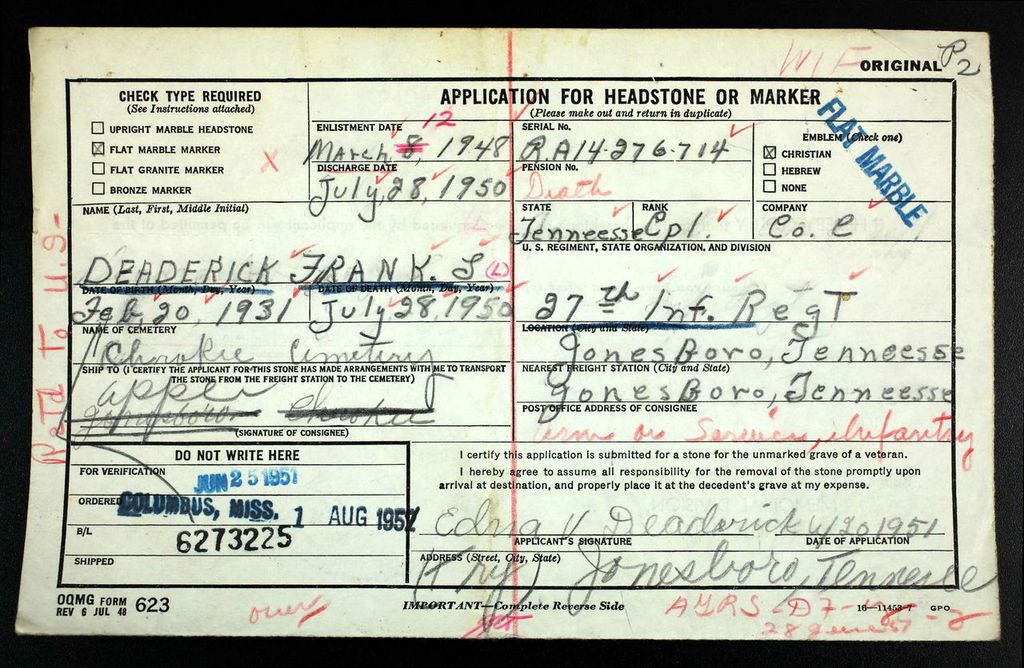 WIF ORIGINAL P2
CHECK TYPE REQUIRED
(See Instructions attached)
☐ UPRIGHT MARBLE HEADSTONE
☒ FLAT MARBLE MARKER
☐ FLAT GRANITE MARKER
☐ BRONZE MARKER
X
APPLICATION FOR HEADSTONE OR MARKER
(Please make out and return in duplicate)
ENLISTMENT DATE
12
March 8, 1948
DISCHARGE DATE
July, 28, 1950
SERIAL No.
RA14-276-714
PENSION No.
Death
EMBLEM (Check one)
☒ CHRISTIAN
☐ HEBREW
☐ NONE
FLAT MARBLE
STATE
Tenneesse
RANK
Cpl.
COMPANY
Co. C
NAME (Last, First, Middle Initial)
DEADERICK FRANK. S (L)
U. S. REGIMENT, STATE ORGANIZATION, AND DIVISION
27th Inf. RegT
DATE OF BIRTH (Month, Day, Year)
Feb, 20, 1931
DATE OF DEATH (Month, Day, Year)
July 28, 1950
NAME OF CEMETERY
Cherokie Cimetery
LOCATION (City and State)
JonesBoro, Tenneesse
SHIP TO (I CERTIFY THE APPLICANT FOR THIS STONE HAS MADE ARRANGEMENTS WITH ME TO TRANSPORT
THE STONE FROM THE FREIGHT STATION TO THE CEMETERY)
appli
(SIGNATURE OF CONSIGNEE)
NEAREST FREIGHT STATION (City and State)
JonesBoro, Tenneesse
POST OFFICE ADDRESS OF CONSIGNEE
Infantry
DO NOT WRITE HERE
FOR VERIFICATION
JUN 25 1951
ORDERED
COLUMBUS, MISS. 1 AUG 1951
B/L
6273225
SHIPPED
I certify this application is submitted for a stone for the unmarked grave of a veteran.
I hereby agree to assume all responsibility for the removal of the stone promptly upon
arrival at destination, and properly place it at the decedent's grave at my expense.
Edna V Deaderick 4/20 1951
APPLICANT'S SIGNATURE DATE OF APPLICATION
ADDRESS (Street, City, State)
Jonesboro, Tennessee
OQMG FORM 623
REV 6 JUL 48
over
IMPORTANT—Complete Reverse Side
16—11453-7 GPO